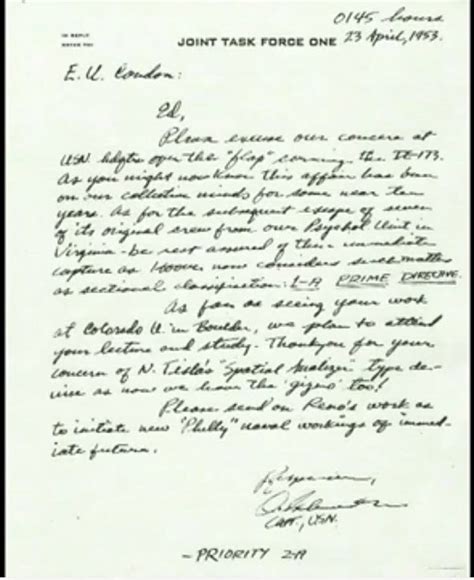 0145 hours
IN REPLY
REFER TO:
JOINT TASK FORCE ONE 23 April, 1953.
E. U. Condon:
Ed,
Please excuse our concern at
USN. hdqtrs over the "flap" the DE-173.
As you might now know this affair has been
on our collective minds for some near ten
years. As for the subsequent escape of seven
of its original crew from our Psychol Unit in
Virginia - be rest assured of their immediate
capture as Hoover now considers such matters
as sectional classification: 1-A PRIME DIRECTIVE.
As far as seeing your work
at Colorado U. in Boulder, we plan to attend
your lecture and study. Thank you for your
concern of N. Tesla's "Spatial " type de-
vice as now we have the "gizmo" too!
Please send on Reno's work as
to initiate new "Philly" naval workings of immed-
iate future.
CAPT., USN.
- PRIORITY 2-A